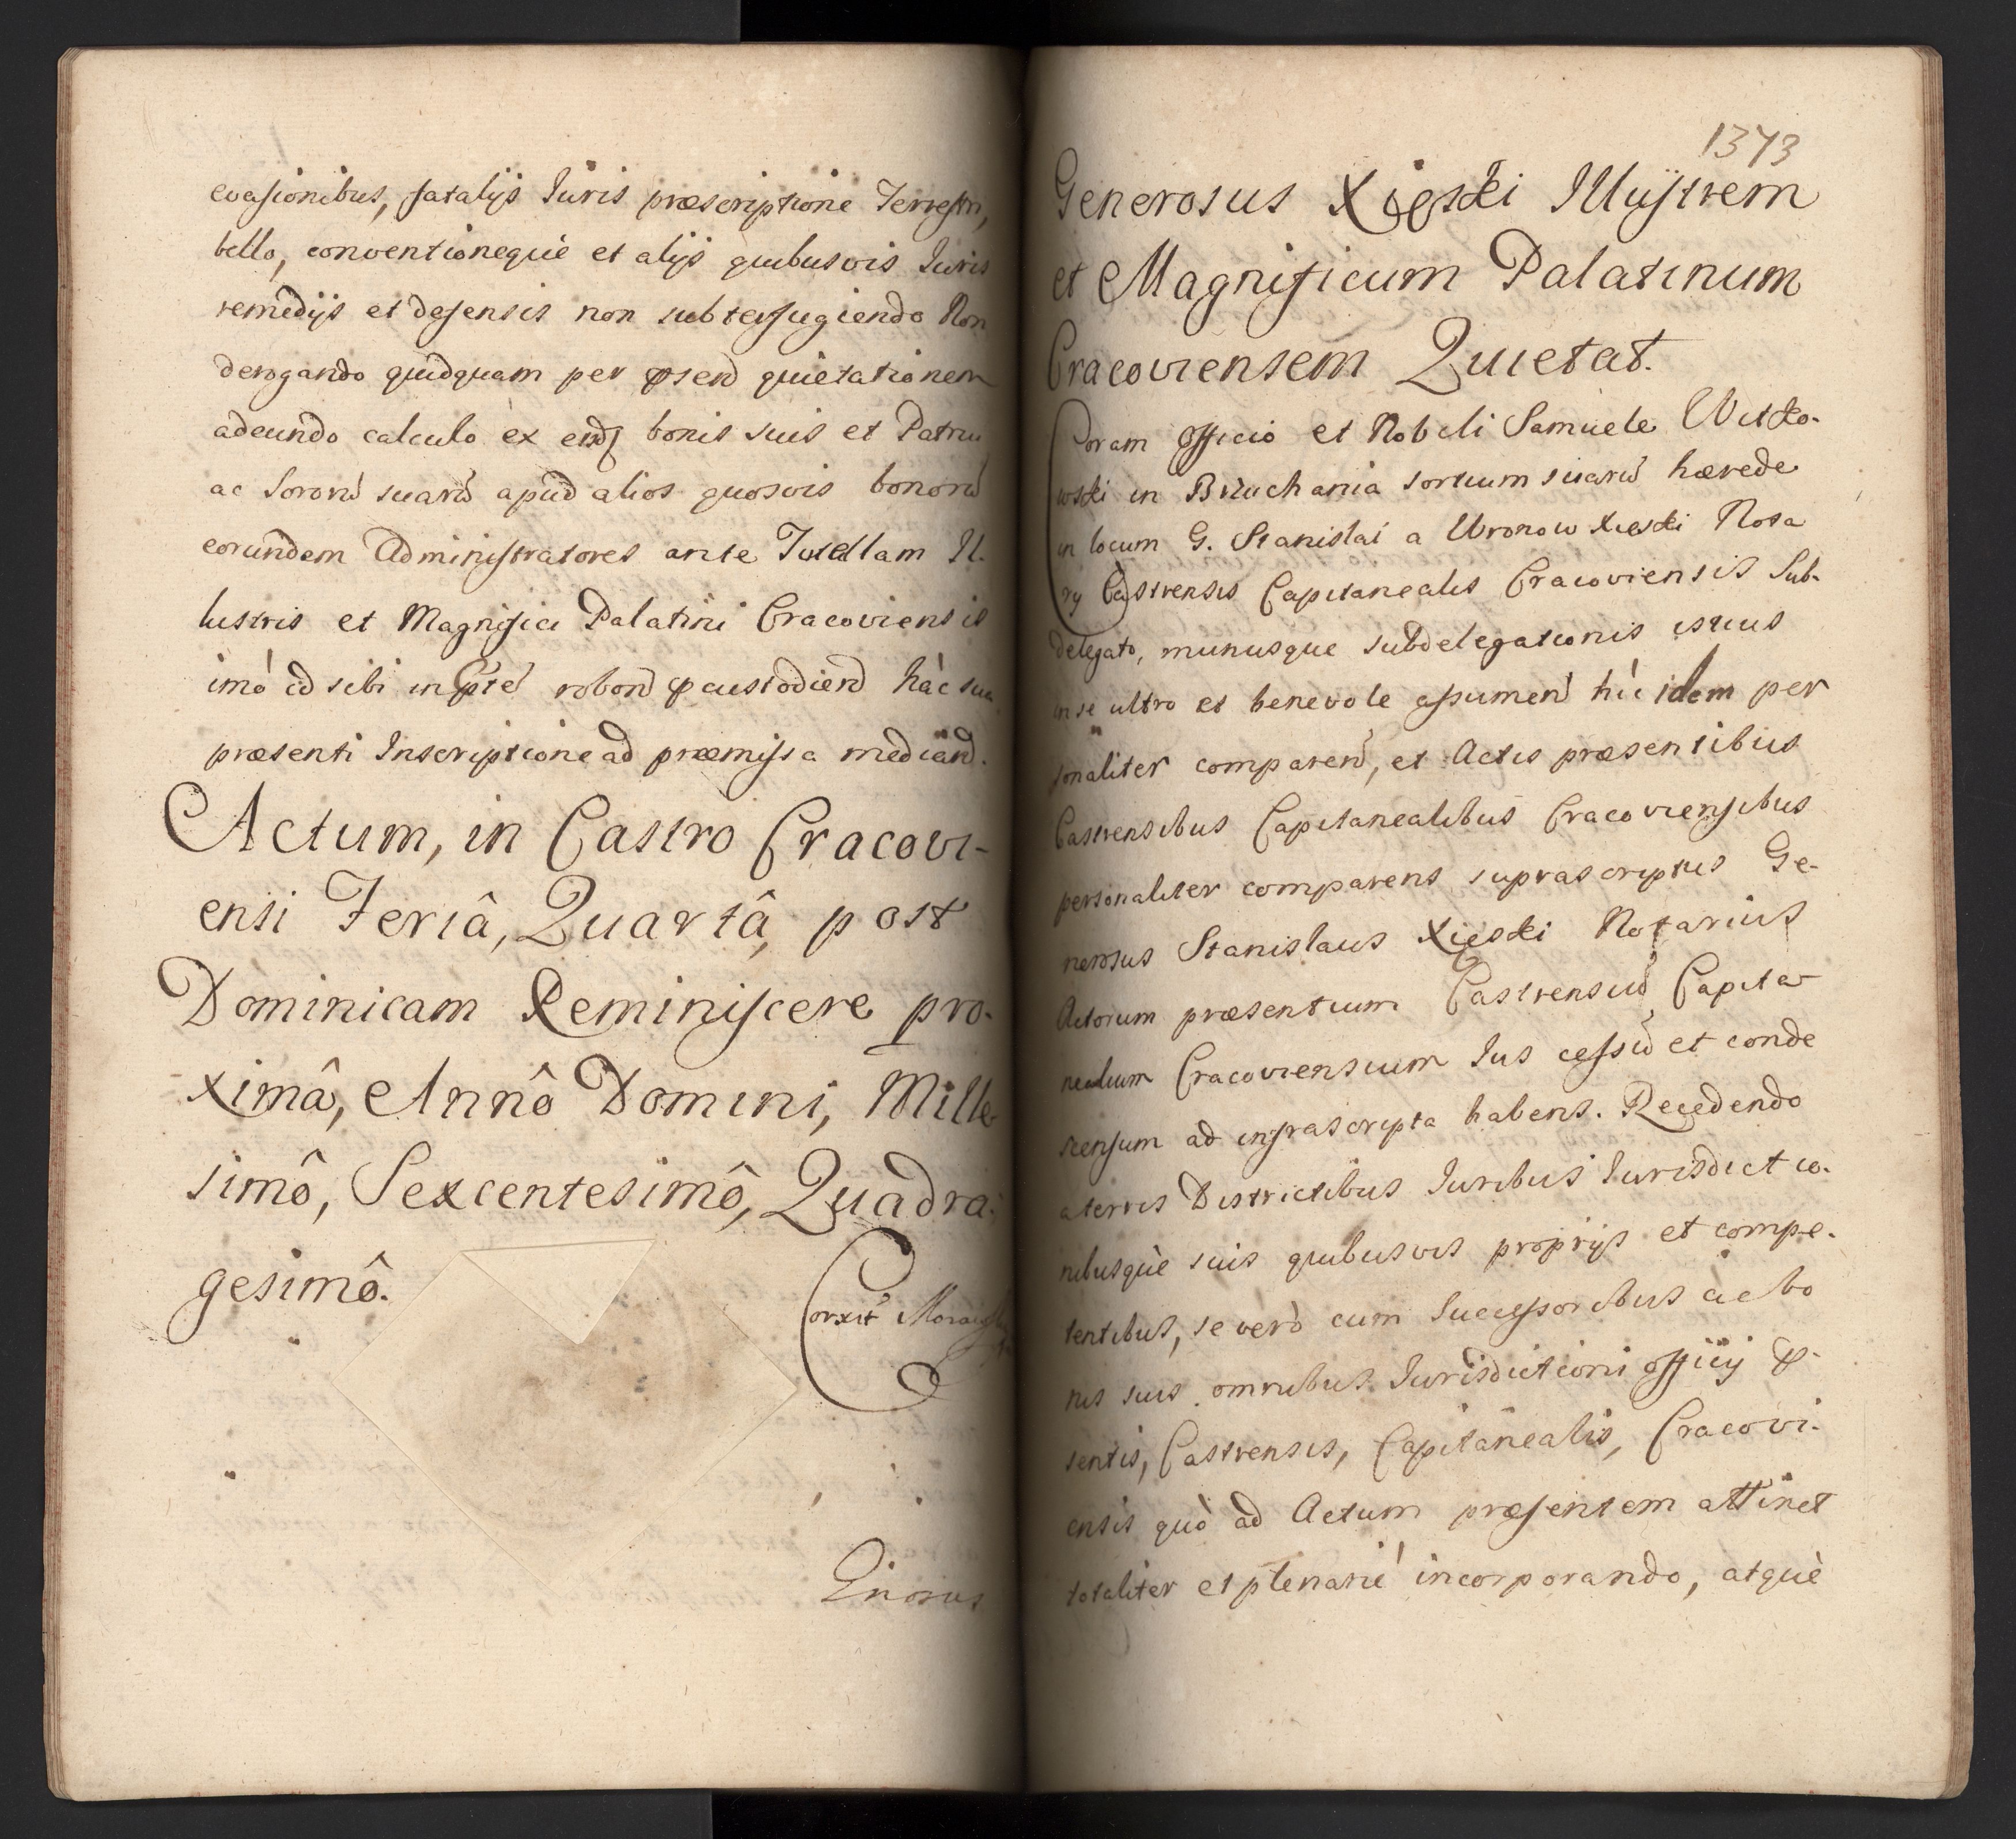 evasionibus, fatalijs Iuris præscriptione Terrestri,
bello, conventioneque et alijs quibusvis Iuris
remedijs et defensis non subterfugiendo Non
derogando quidquam per psend quietationem
adeundo calculo ex bonis suis et Patrui
ac Sororu suaru apud alios quosvis bonoru
eorundem Administratores ante Tutellam Il-
lustris et Magnifici Palatini Cracoviensis
imò id sibi in robore custodiend hâc sua
præsenti Inscriptione ad præmissa mediand.
Actum, in Castro Cracovi-
ensi Feriâ, Quartâ, post
Dominicam Reminiscere pro-
ximâ, Annô Domini, Mille-
simô, Sexcentesimô, Quadra-
gesimô.
Corxit
Gnosus
1373
Generosus Xięski Illustrem
et Magnificum Palatinum
Cracoviensem Quietat.
Coram Officio et Nobili Samuele Witko-
wski in Bruchania sortium suaru hærede
in locum G. Stanislai a Wronow Xięski Nota
rij Castrensis Capitanealis Cracoviensis Sub-
delegato, munusque subdelegationis istius
in se ultro et benevole assumen hic idem per
sonaliter comparen, et Actis præsentibus
Castrensibus Capitanealibus Cracoviensibus
personaliter comparens suprascriptus Ge-
nerosus Stanislaus Xięski Notarius
Actorum præsentium Castrensiu Capita-
nealium Cracoviensium Ius cessu et conde
scensum ad infrascripta habens. Recedendo
a terris Districtibus Iuribus Iurisdictio-
nibusque suis quibusvis proprijs et compe-
tentibus, se verò cum Successoribus ac bo
nis suis omnibus Iurisdictioni officij P-
sentis, Castrensis, Capitanealis, Cracovi-
ensis quò ad Actum præsentem attinet
totaliter et plenarie incorporando, atque